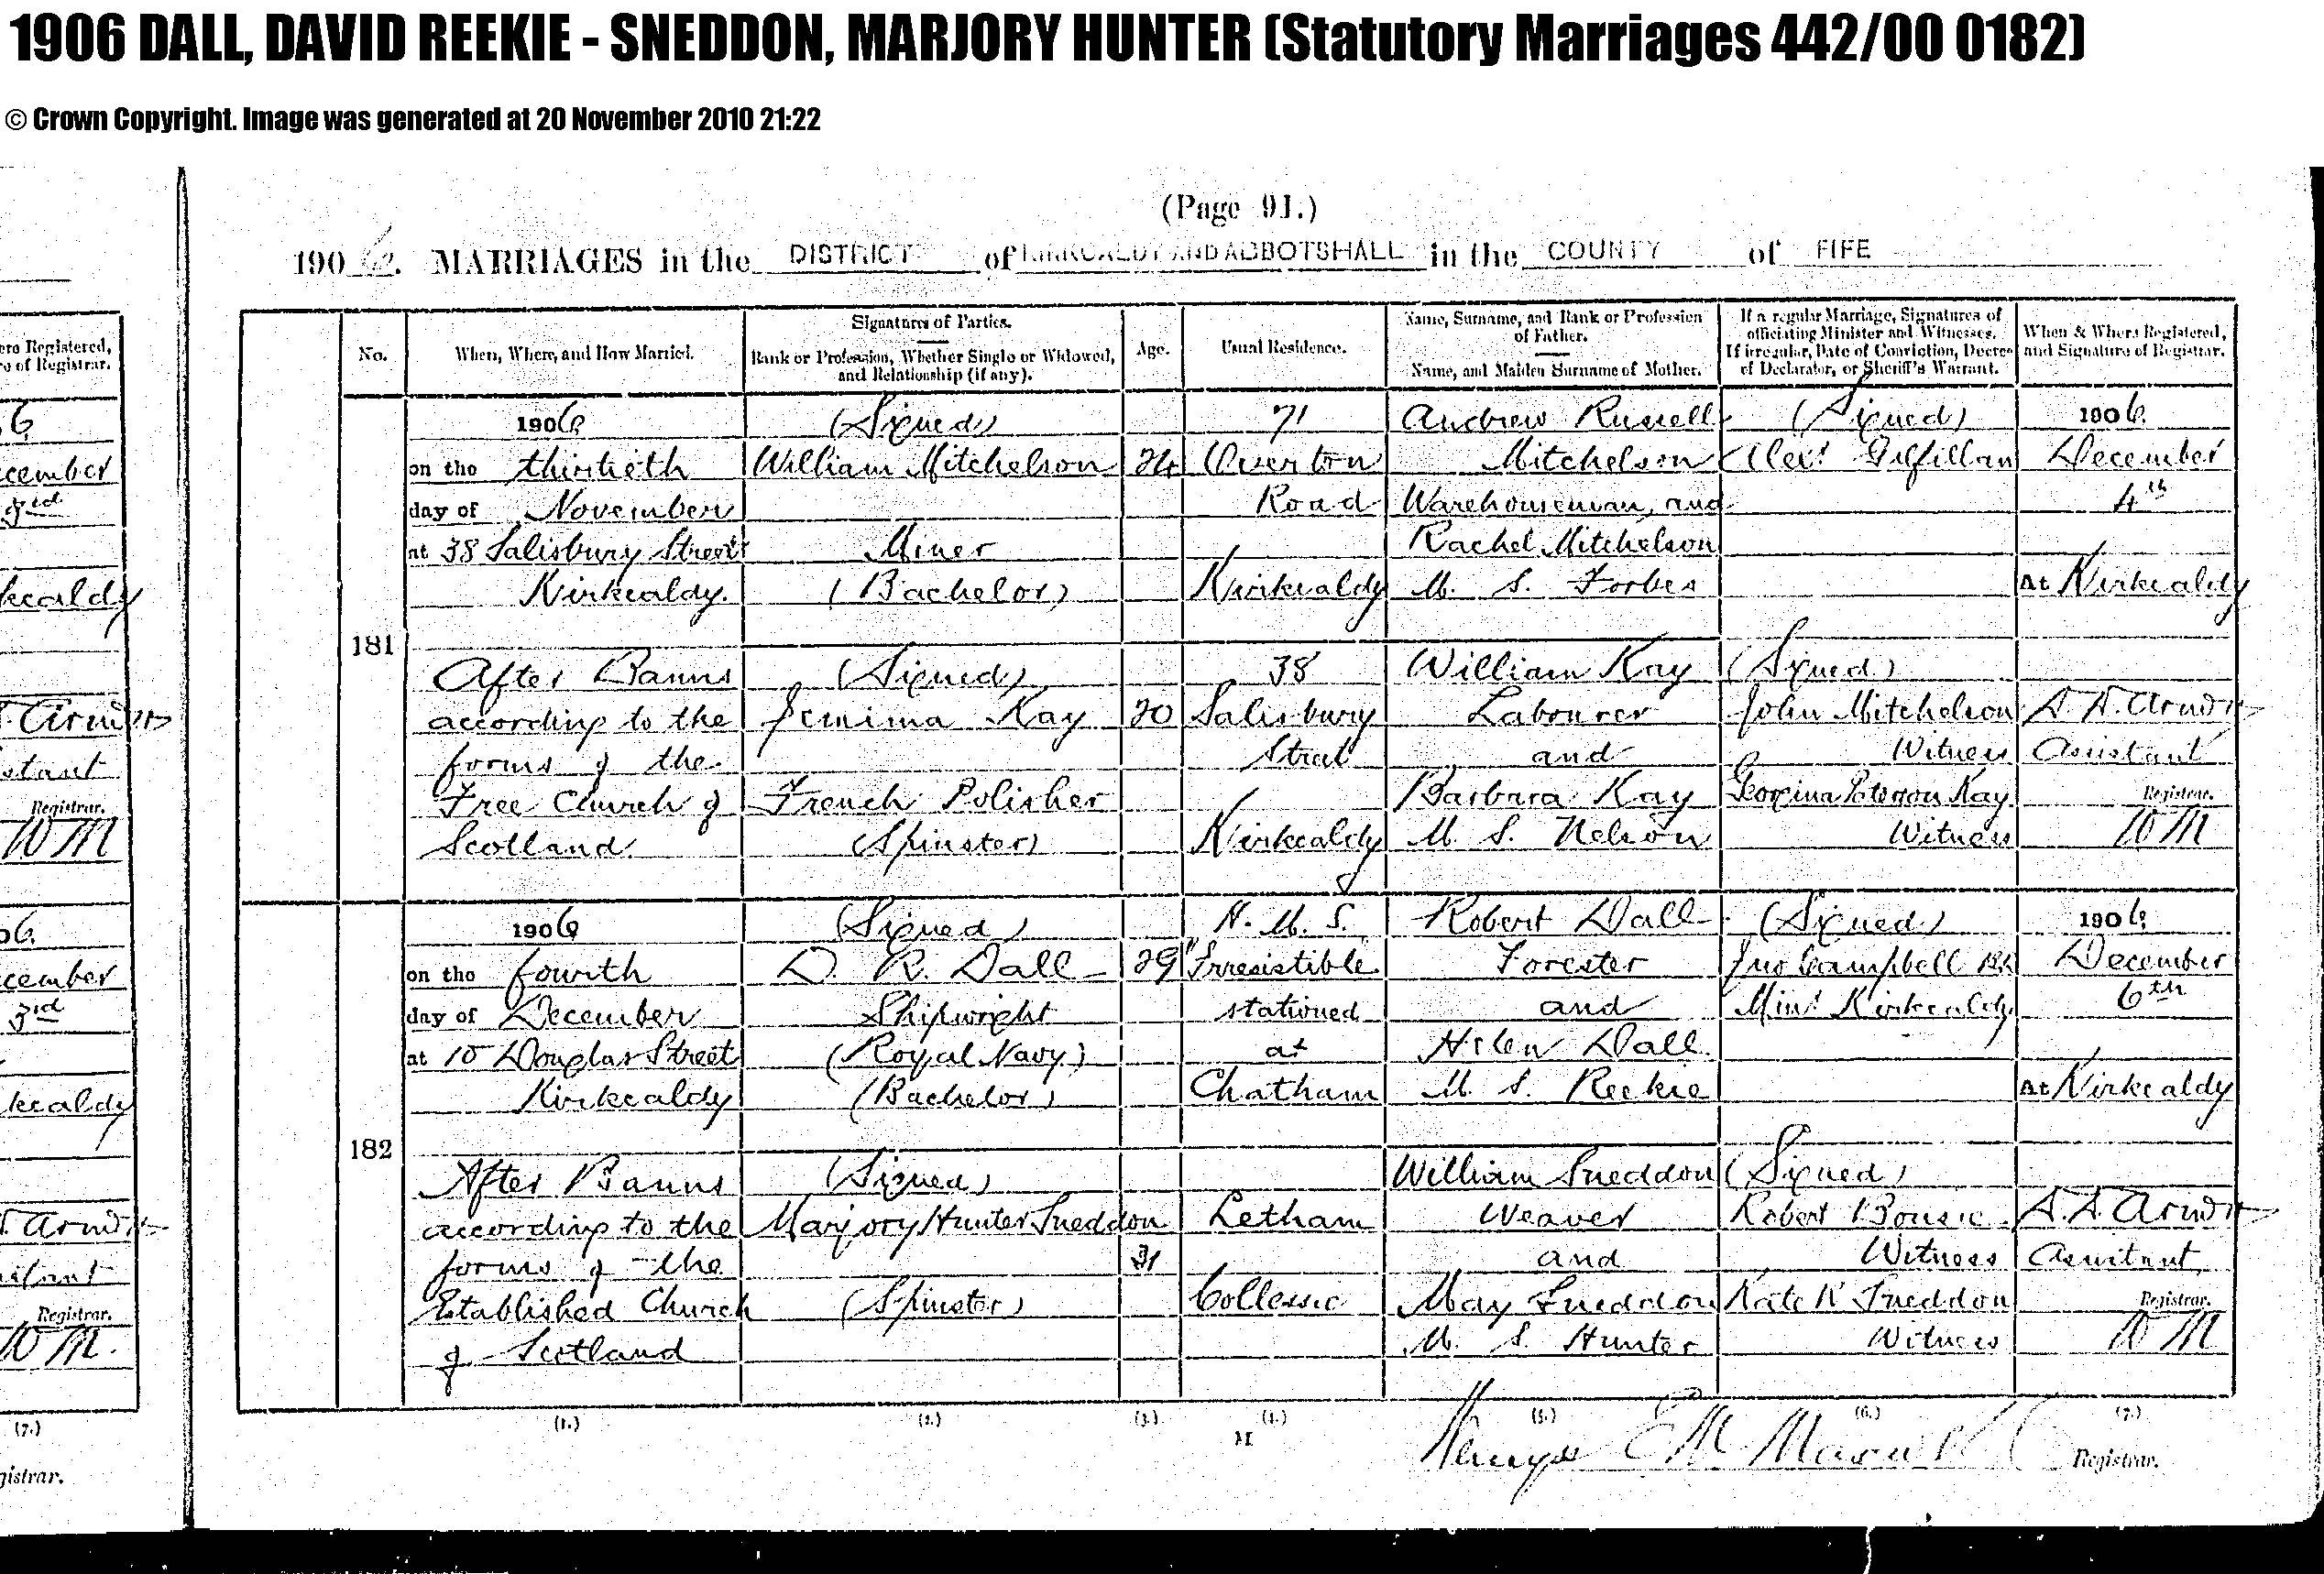 1906 DALL, DAVID REEKIE - SNEDDON, MARJORY HUNTER (Statutory Marriages 442/00 0182)
© Crown Copyright. Image was generated at 20 November 2010 21:22
(Page 91.)
1906. MARRIAGES in the DISTRICT of KIRKCALDY AND ABBOTSHALL in the COUNTY of FIFE
No.
When, Where, and How Married.
Signatures of Parties.
Rank or Profession, Whether Single or Widowed,
and Relationship (if any).
Age.
Usual Residence.
Name, Surname, and Rank or Profession
of Father.
Name, and Maiden Surname of Mother.
If a regular Marriage, Signatures of
officiating Minister and Witnesses.
If irregular, Date of Conviction, Decree
of Declarator, or Sheriff's Warrant.
When & Where Registered,
and Signature of Registrar.
181
1906
on the thirtieth
day of November
at 38 Salisbury Street
Kirkcaldy.
After Banns
according to the
forms of the
Free Church of
Scotland.
(Signed)
William Mitchelson
Miner
(Bachelor)
(Signed)
Jemima Kay
French Polisher
(Spinster)
24
20
71
Overton
Road
Kirkcaldy
38
Salisbury
Street
Kirkcaldy
Andrew Russell
Mitchelson
Warehouseman, and
Rachel Mitchelson
M. S. Forbes
William Kay
Labourer
and
Barbara Kay
M. S. Nelson
(Signed)
Alexr Gilfillan
(Signed)
John Mitchelson
Witness
Georgina Paterson Kay
Witness
1906.
December
4th
At Kirkcaldy
Assistant
Registrar.
182
1906
on the fourth
day of December
at 10 Douglas Street
Kirkcaldy
After Banns
according to the
forms of the
Established Church
of Scotland
(Signed)
D. R. Dall
Shipwright
(Royal Navy)
(Bachelor)
(Signed)
Marjory Hunter Sneddon
(Spinster)
29
31
H. M. S.
"Irresistible
stationed
at
Chatham
Letham
Collessie
Robert Dall
Forester
and
Helen Dall
M. S. Reekie
William Sneddon
Weaver
and
May Sneddon
M. S. Hunter
(Signed)
Jno Campbell
Minr Kirkcaldy
(Signed)
Robert
Witness
Kate Sneddon
Witness
1906.
December
6th
At Kirkcaldy
Assistant
Registrar.
(1.) (2.) (3.) (4.) (5.) (6.) (7.)
M
Registrar.